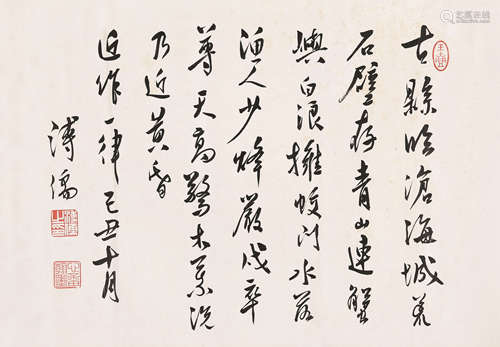 古縣臨滄海城荒
石壁存青山連蟹
嶼白浪擁蛟門水落
漁人少烽嚴戍卒
尊天高驚木葉況
乃近黃昏
近作一律己丑十月
溥儒